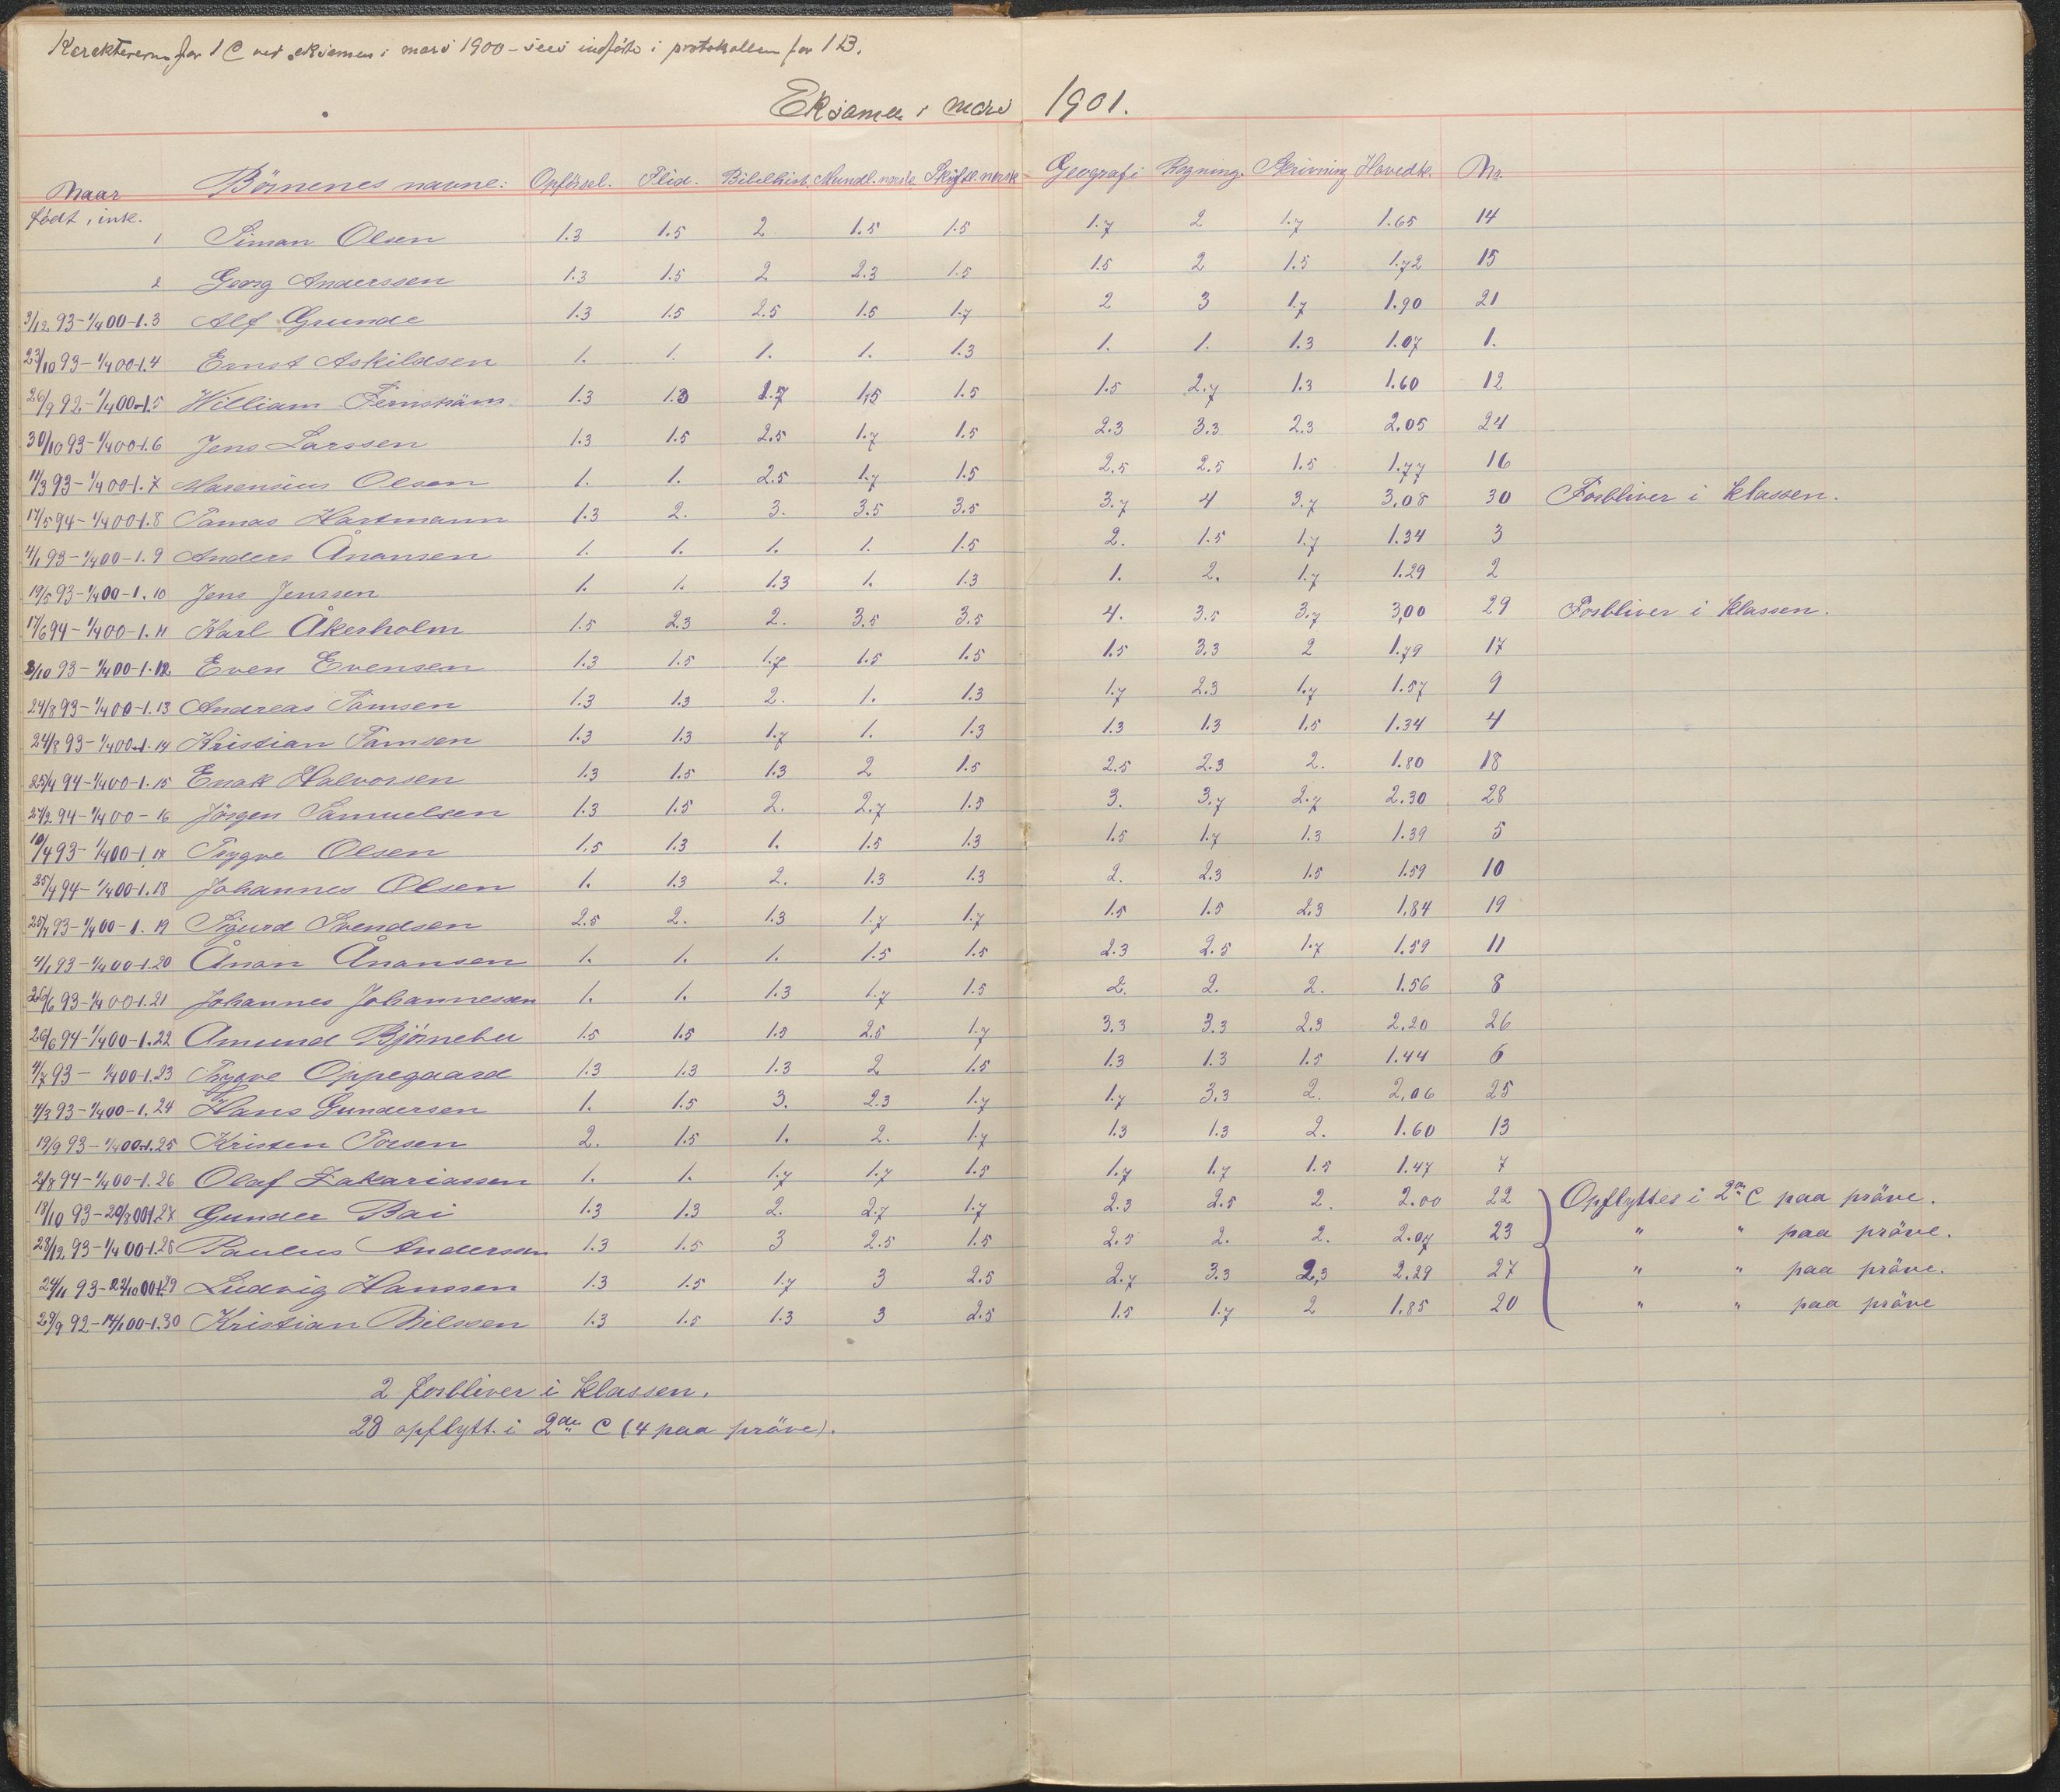 Karaktererne for 1 C ved eksamen i mars 1900 – sees indførte i protokollen for 1 B.
Eksamen i mars 1901.
Naar født, ink. Börnenes navne: Opförsel. Flid. Bibelhist. Mundl. norsk. Skriftl. norsk Geografi Regning. Skrivning Hovedk. Nr.
1 Simon Olsen 1.3 1.5 2 1.5 1.5 1.7 2 1.7 1.65 14
2 Georg Anderssen 1.3 1.5 2 2.3 1.5 1.5 2 1.5 1.72 15
3/12 93-1/4 00-1. 3 Alf Grunde 1.3 1.5 2.5 1.5 1.7 2 3 1.7 1.90 21
23/10 93-1/4 00-1. 4 Ernst Askildsen 1. 1. 1. 1. 1.3 1. 1. 1.3 1.07 1.
26/9 92-1/4 00-1. 5 William Fernström 1.3 1.3 1.7 1,5 1.5 1.5 2.7 1.3 1.60 12
30/10 93-1/4 00-1. 6 Jens Larssen 1.3 1.5 2.5 1.7 1.5 2.3 3.3 2.3 2.05 24
11/3 93-1/4 00-1. 7 Marensius Olsen 1. 1. 2.5 1.7 1.5 2.5 2.5 1.5 1.77 16
17/5 94-1/4 00-1. 8 Tomas Hartmann 1.3 2. 3. 3.5 3.5 3.7 4 3.7 3,08 30 Forbliver i klassen.
4/1 93-1/4 00-1. 9 Anders Ånansen 1. 1. 1. 1. 1.5 2. 1.5 1.7 1.34 3
19/5 93-1/4 00-1. 10 Jens Jenssen 1. 1. 1.3 1. 1.3 1. 2. 1.7 1.29 2
17/6 94-1/4 00-1. 11 Karl Åkerholm 1.5 2.3 2. 3.5 3.5 4. 3.5 3.7 3,00 29 Forbliver i klassen.
3/10 93-1/4 00-1. 12. Even Evensen 1.3 1.5 1.7 1.5 1.5 1.5 3.3 2 1.79 17
24/8 93-1/4 00-1. 13 Andreas Tomsen 1.3 1.3 2. 1. 1.3 1.7 2.3 1.7 1.57 9
24/8 93-1/4 00-1. 14 Kristian Tomsen 1.3 1.3 1.7 1. 1.3 1.3 1.3 1.5 1.34 4
25/4 94-1/4 00-1. 15 Enok Halvorsen 1.3 1.5 1.3 2 1.5 2.5 2.3 2. 1.80 18
27/2 94-1/4 00 - 16 Jörgen Samuelsen 1.3 1.5 2. 2.7 1.5 3. 3.7 2.7 2.30 28
10/4 93-1/4 00-1. 17 Trygve Olsen 1.5 1.3 1. 1.5 1.3 1.5 1.7 1.3 1.39 5
25/4 94-1/4 00-1. 18 Johannes Olsen 1. 1.3 2. 1.3 1.3 2. 2.3 1.5 1.59 10
25/4 93-1/4 00-1. 19 Sigurd Svendsen 2.5 2. 1.3 1.7 1.7 1.5 1.5 2.3 1,84 19
4/1 93-1/4 00-1. 20 Ånon Ånonsen 1. 1. 1. 1.5 1.5 2.3 2.5 1.7 1.59 11
26/6 93-1/4 00-1. 21 Johannes Johannessen 1. 1. 1.3 1.7 1.5 2. 2. 2. 1.56 8
26/6 94-1/4 00-1. 22 Amund Björnebu 1.5 1.5 1.5 2.5 1.7 3.3 3.3 2.3 2.20 26
4/7 93-1/4 00-1. 23 Trygve Oppegaard 1.3 1.3 1.3 2 1.5 1.3 1.3 1.5 1.44 6
4/3 93-1/4 00-1. 24 Hans Gundersen 1. 1.5 3. 2.3 1.7 1.7 3.3 2. 2,06 25
19/9 93-1/4 00-1. 25 Kristen Torsen 2. 1.5 1. 2. 1.7 1.3 1.3 2. 1.60 13
2/8 94-1/4 00-1. 26 Olaf Zakariassen 1. 1. 1.7 1.7 1.5 1.7 1.7 1.5 1.47 7
18/10 93-20/8 00-1. 27 Gunder Bai 1.3 1.3 2. 2.7 1.7 2.3 2.5 2. 2.00 22 Opflyttes i 2den C paa pröve.
28/12 93-1/4 00-1. 28 Paulus Anderssen 1.3 1.5 3 2.5 1.5 2.5 2. 2. 2.07 23 " " paa pröve.
24/11 93-22/10 00-1. 29 Ludvig Hanssen 1.3 1.5 1.7 3 2.5 2.7 3.3 2,3 2.29 27 " " paa pröve.
29/9 92-14/1 00-1. 30 Kristian Nilssen 1.3 1.5 1.3 3 2.5 1.5 1.7 2 1,85 20 " " paa pröve
2 forbliver i klassen.
28 opflytt. i 2den C (4 paa pröve).